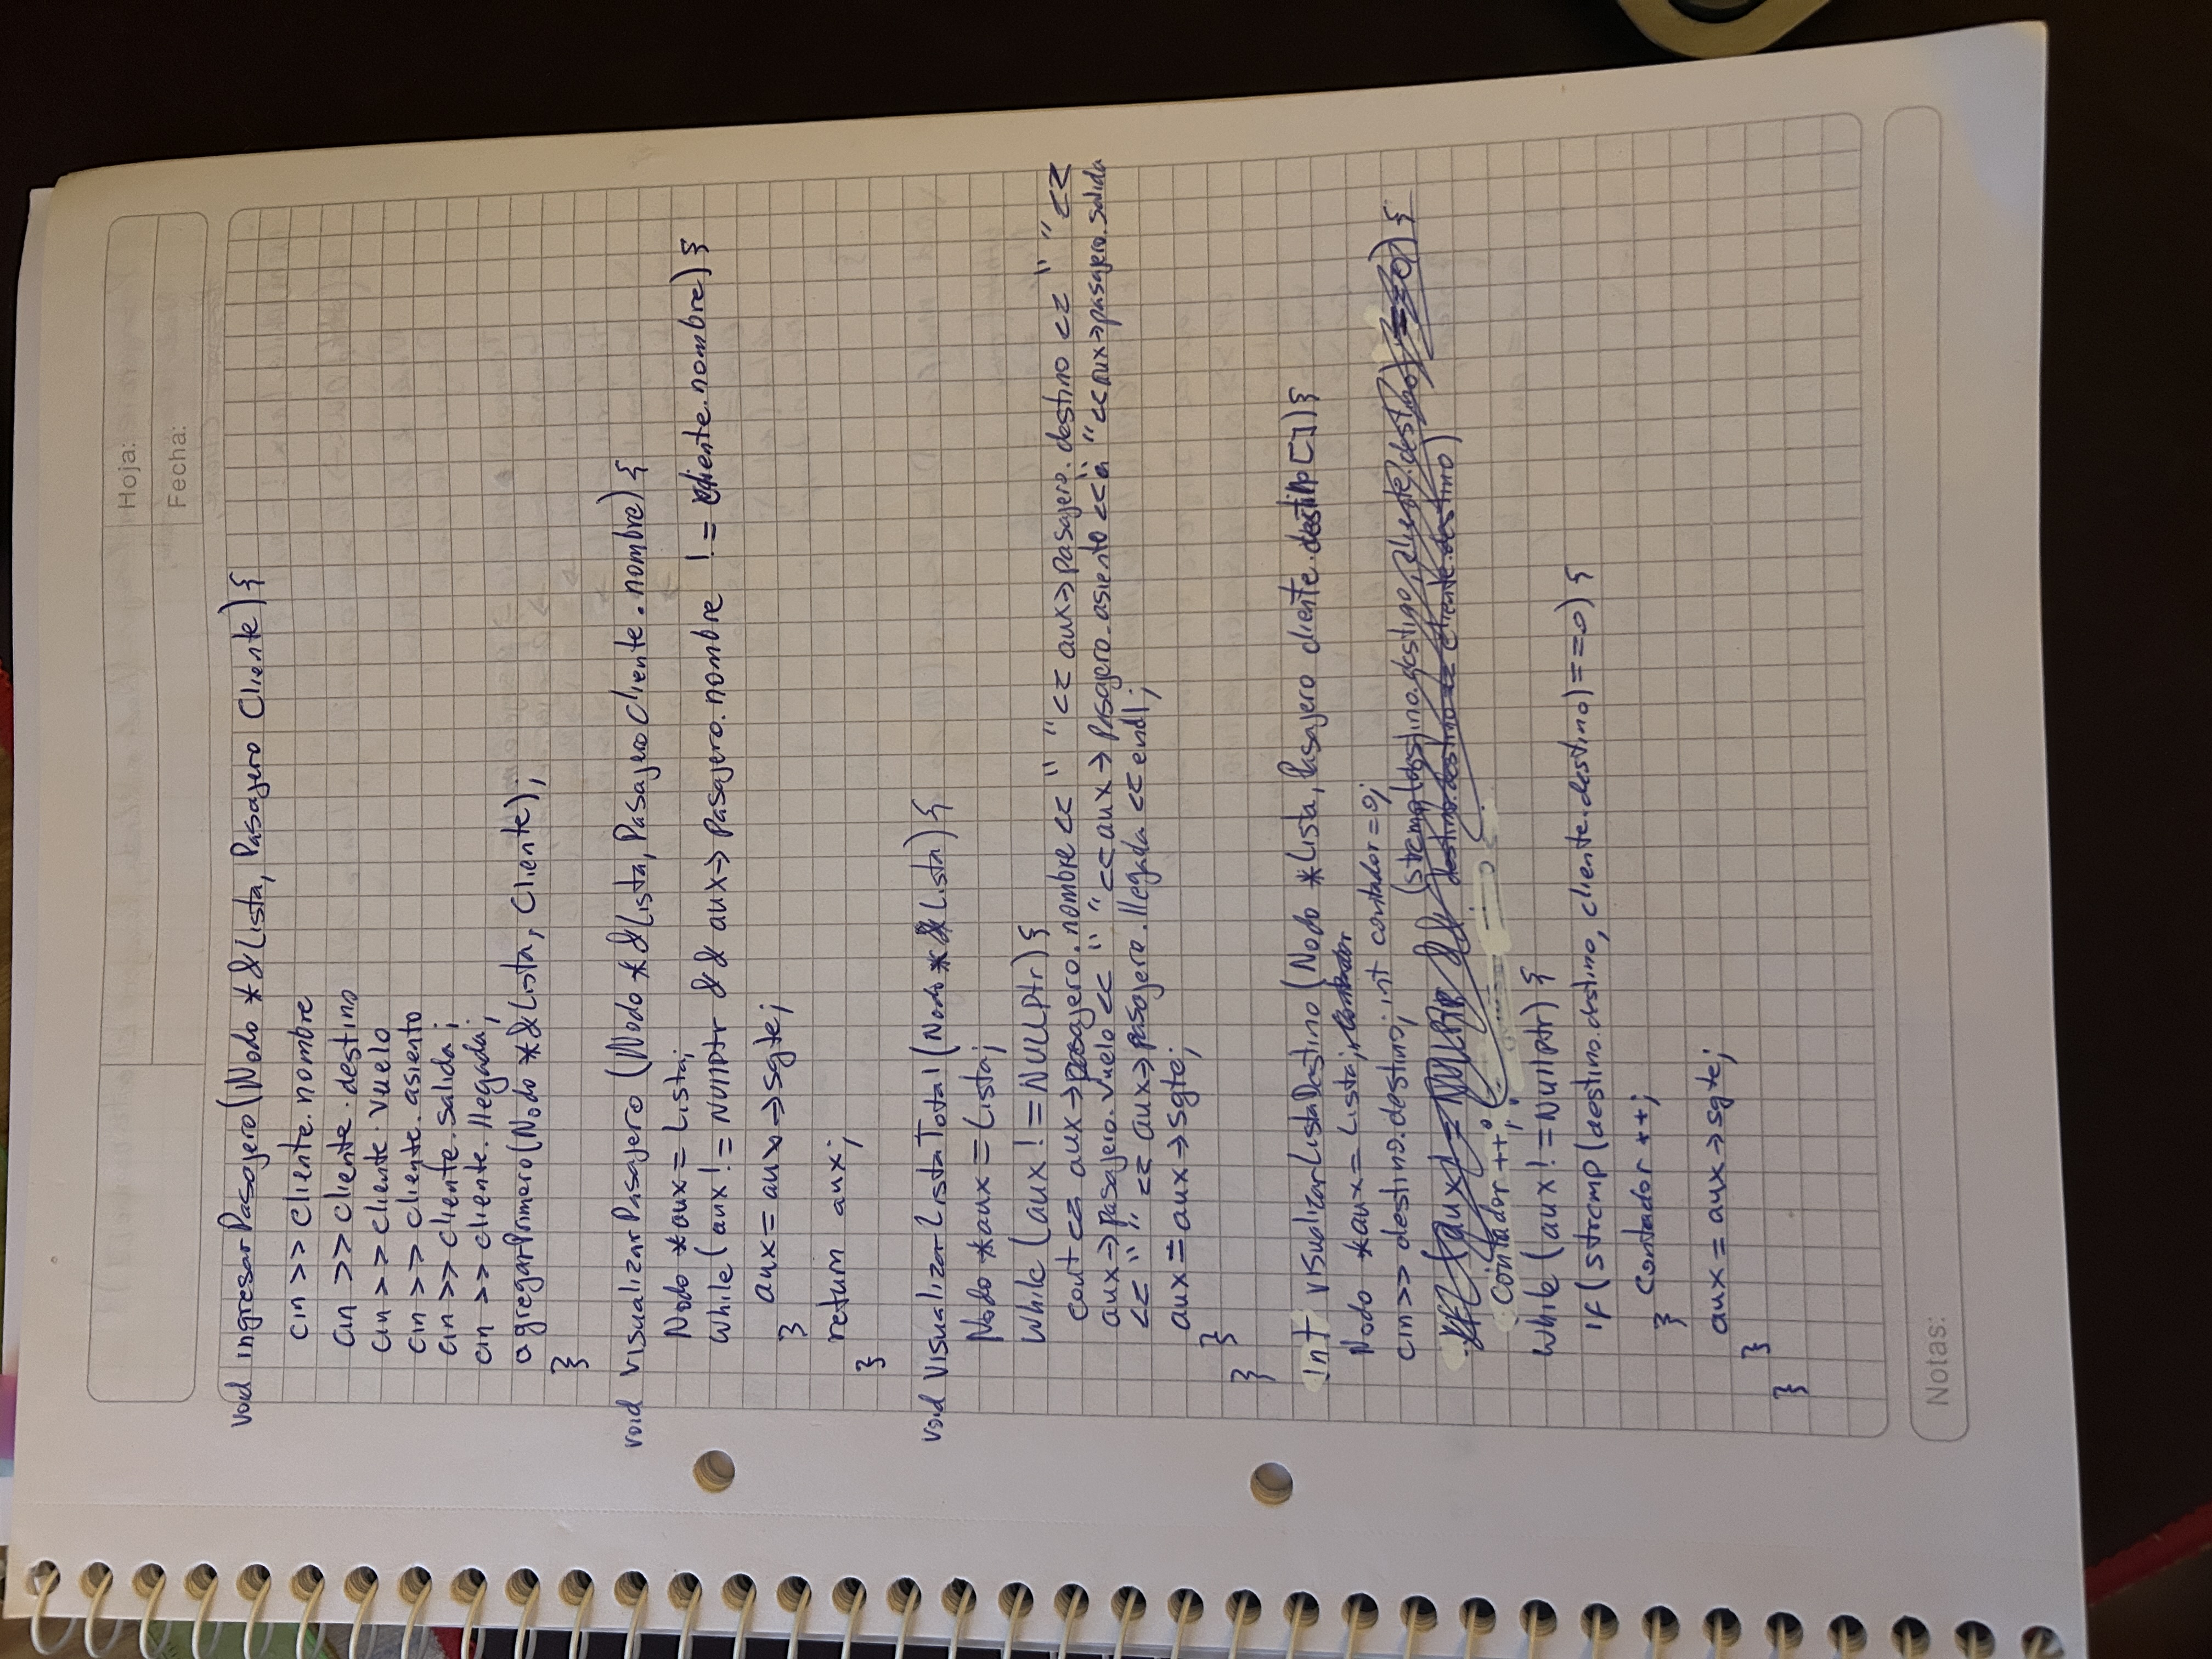 Hoja:
Fecha:
void ingresarPasajero(Nodo *&Lista, Pasajero Cliente){
cin >> cliente.nombre
cin >> cliente.destino
cin >> cliente.vuelo
cin >> cliente.asiento
cin >> cliente.salida;
cin >> cliente.llegada;
agregarPrimero(Nodo *&Lista, Cliente);
}
void visualizarPasajero (Nodo *&Lista, Pasajero Cliente.nombre){
Nodo *aux = Lista;
while(aux != Nullptr && aux-> pasajero.nombre != cliente.nombre){
aux = aux->sgte;
}
return aux;
}
void VisualizarListaTotal(Nodo *& Lista){
Nodo *aux = Lista;
While (aux != NULLptr){
cout << aux->pasajero.nombre << " " << aux->pasajero.destino << " " <<
aux->pasajero.vuelo << " " << aux-> Pasajero.asiento << " " << aux->pasajero.salida
<< " " << aux->pasajero.llegada << endl;
aux = aux->sgte;
}
}
int visualizarListaDestino (Nodo *Lista, Pasajero cliente.destino[]){
Nodo *aux = Lista; contador
cin >> destino.destino; int contador = 0;
(strcmp(destino.destino, cliente.destino) == 0) {
if (aux != NULLPtr && destino.destino == cliente.destino)
Contador ++;
While (aux != Nullptr) {
if (strcmp (destino.destino, cliente.destino) == 0) {
Contador ++;
}
aux = aux->sgte;
}
}
Notas: